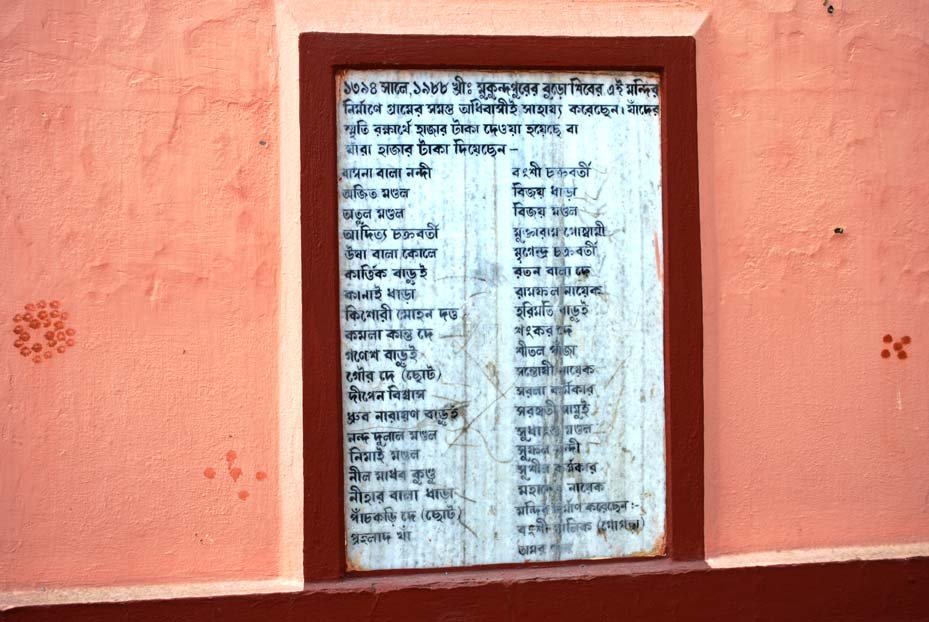 ১৩৯৪ সালে, ১৯৮৮ খ্রীঃ মুকুন্দপুরের বুড়ো শিবের এই মন্দির
নির্মাণে গ্রামের সমস্ত অধিবাসীই সাহায্য করেছেন। যাঁদের
স্মৃতি রক্ষার্থে হাজার টাকা দেওয়া হয়েছে বা
যাঁরা হাজার টাকা দিয়েছেন –
বালা নন্দী
অজিত মণ্ডল
অতুল মণ্ডল
আদিত্য চক্রবর্তী
ঊষা বালা কোলে
কার্ত্তিক বাড়ুই
কানাই ধাড়া
কিশোরী মোহন দত্ত
কমলা কান্ত দে
গণেশ বাড়ুই
গৌর দে (ছোট)
দীপেন বিশ্বাস
ধ্রুব নারায়ণ বাড়ুই
নন্দ দুলাল মণ্ডল
নিমাই মণ্ডল
নীল মাধব কুণ্ডু
নীহার বালা ধাড়া
পাঁচকড়ি দে (ছোট)
প্রহলাদ খাঁ
বংশী চক্রবর্তী
বিজয় ধাড়া
বিজয় মণ্ডল
মুক্তারাম গোস্বামী
মৃগেন্দ্র চক্রবর্তী
রতন বালা দে
রামফল নায়েক
হরিমতি বাড়ুই
শংকর দে
শীতল পাঁজা
সন্তোষী নায়েক
সরলা কর্মকার
সরস্বতী সামুই
সুধাংশু মণ্ডল
সুফল নন্দী
সুধীর কর্মকার
মহাদেব নায়েক
মন্দির নির্মাণ করেছেন:-
বংশী মালিক
অমর